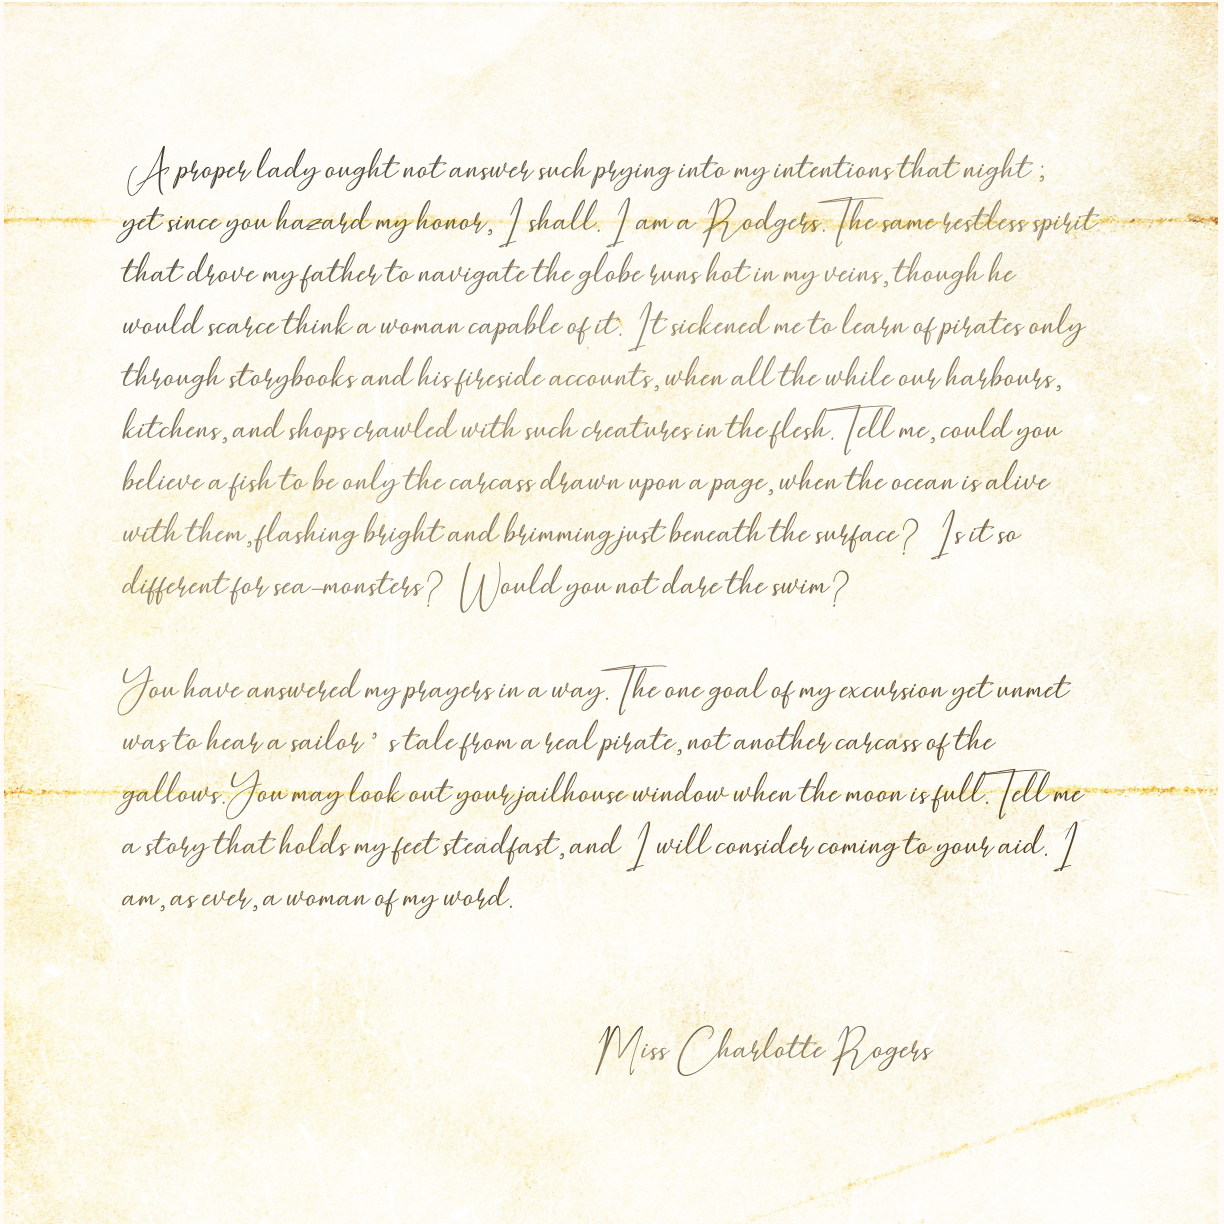 A proper lady ought not answer such prying into my intentions that night;
yet since you hazard my honor, I shall. I am a Rodgers. The same restless spirit
that drove my father to navigate the globe runs hot in my veins, though he
would scarce think a woman capable of it. It sickened me to learn of pirates only
through storybooks and his fireside accounts, when all the while our harbours,
kitchens, and shops crawled with such creatures in the flesh. Tell me, could you
believe a fish to be only the carcass drawn upon a page, when the ocean is alive
with them, flashing bright and brimming just beneath the surface? Is it so
different for sea-monsters? Would you not dare the swim?
You have answered my prayers in a way. The one goal of my excursion yet unmet
was to hear a sailor's tale from a real pirate, not another carcass of the
gallows. You may look out your jailhouse window when the moon is full. Tell me
a story that holds my feet steadfast, and I will consider coming to your aid. I
am, as ever, a woman of my word.
Miss Charlotte Rogers